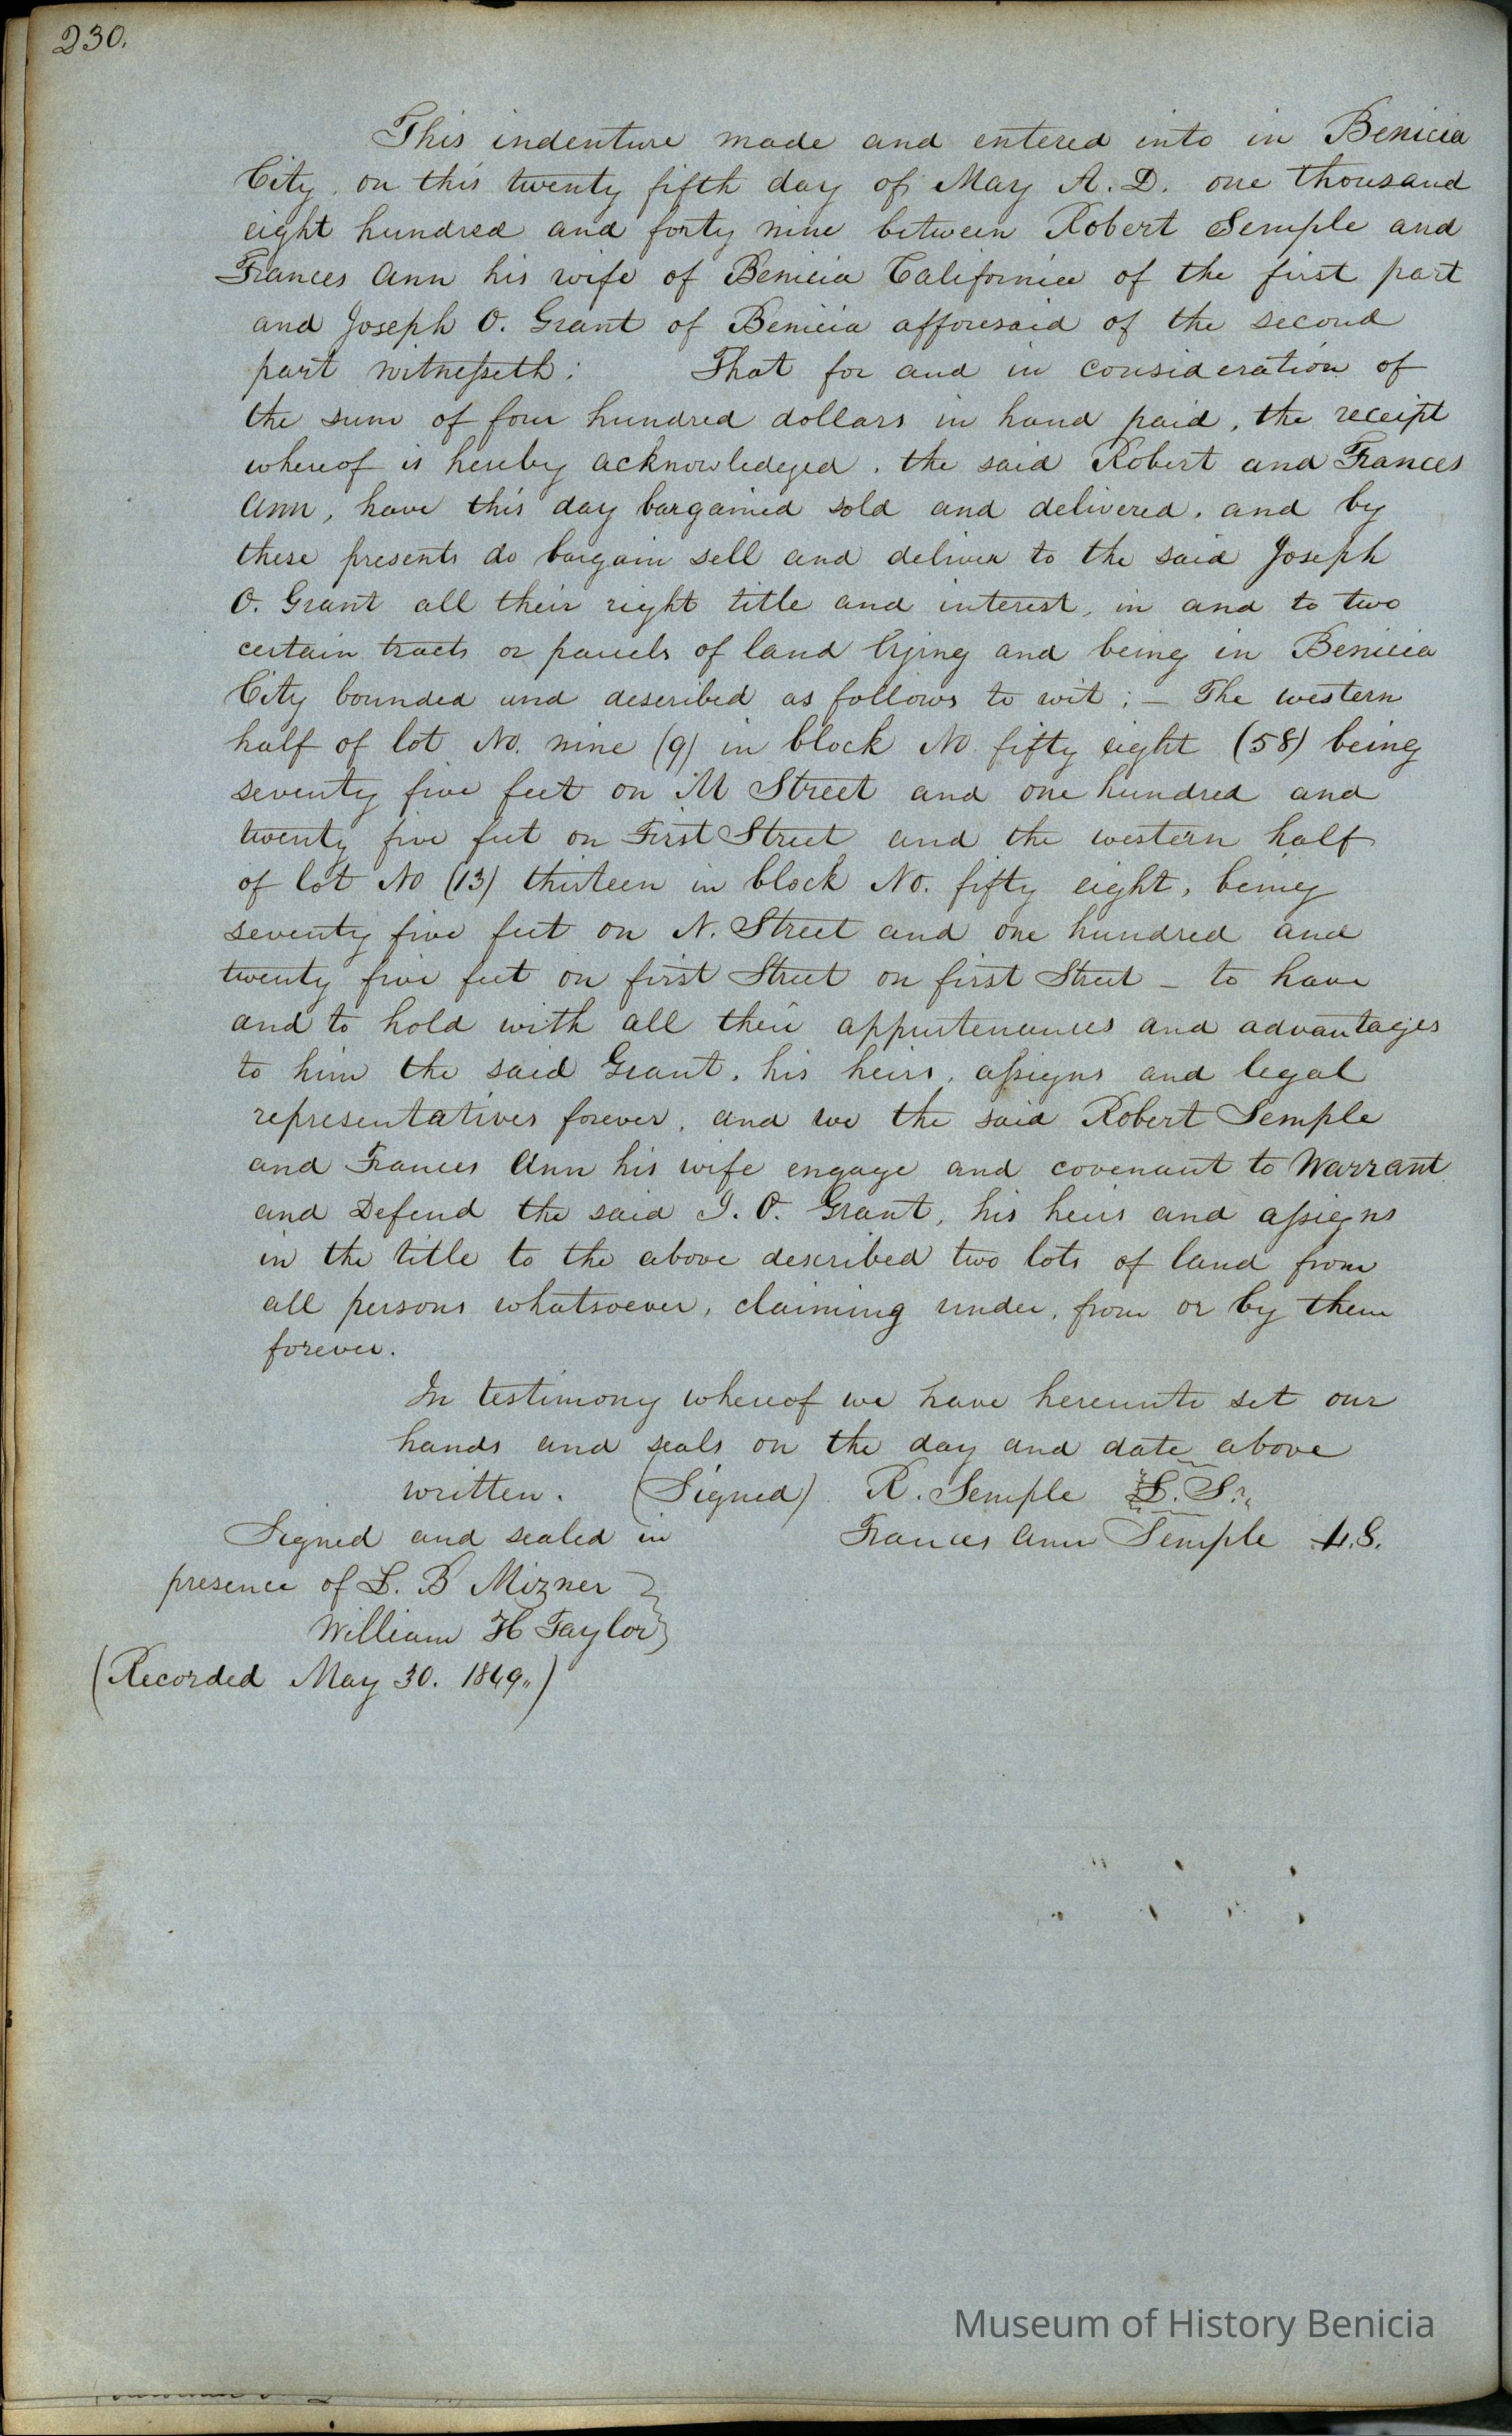 230.
This indenture made and entered into in Benicia
City, on this twenty fifth day of May A. D. one thousand
eight hundred and forty nine between Robert Semple and
Frances Ann his wife of Benicia California of the first part
and Joseph O. Grant of Benicia afforesaid of the second
part witnesseth: That for and in consideration of
the sum of four hundred dollars in hand paid, the receipt
whereof is hereby acknowledeged, the said Robert and Frances
Ann, have this day bargained sold and delivered, and by
these presents do bargain sell and deliver to the said Joseph
O. Grant all their right title and interest, in and to two
certain tracts or parcels of land lying and being in Benicia
City bounded and described as follows to wit; – The western
half of lot No. nine (9) in block No fifty eight (58) being
seventy five feet on M Street and one hundred and
twenty five feet on First Street and the western half
of lot No (13) thirteen in block No. fifty eight, being
seventy five feet on N. Street and one hundred and
twenty five feet on first Street on first Street – to have
and to hold with all their appurtenances and advantages
to him the said Grant, his heirs, assigns and legal
representatives forever, and we the said Robert Semple
and Frances Ann his wife engage and covenant to Warrant
and Defend the said J. O. Grant, his heirs and assigns
in the title to the above described two lots of land from
all persons whatsoever, claiming under, from or by them
forever.
In testimony whereof we have hereunto set our
hands and seals on the day and date above
written. (Signed) R. Semple L. S.
Signed and sealed in Frances Ann Semple L.S.
presence of L. B Mizner
William H Taylor
(Recorded May 30. 1849.)
Museum of History Benicia